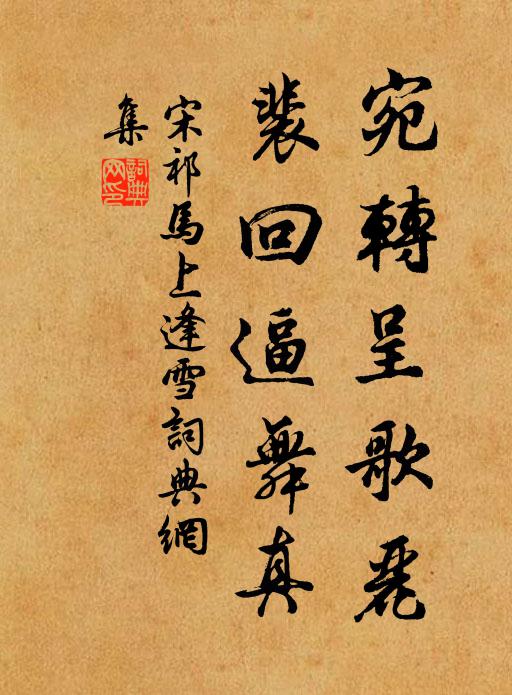 宛轉呈歌麗
裴回逼舞真
宋祁馬上逢雪詞典網
集
詞典
网印